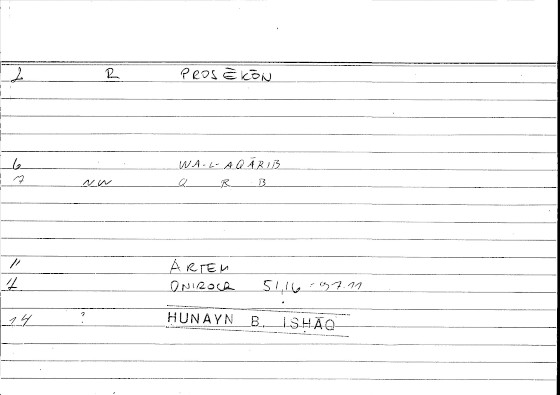 2 R PROSĒKŌN
6 WA-L-AQĀRIB
7 NW Q R B
11 ARTEM
4 ONIROCR 51,16 - 97.11
14 ? HUNAYN B. ISHĀQ